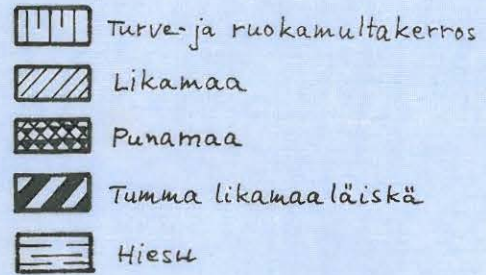 Turve- ja ruokamultakerros
Likamaa
Punamaa
Tumma likamaaläiskä
Hiesu